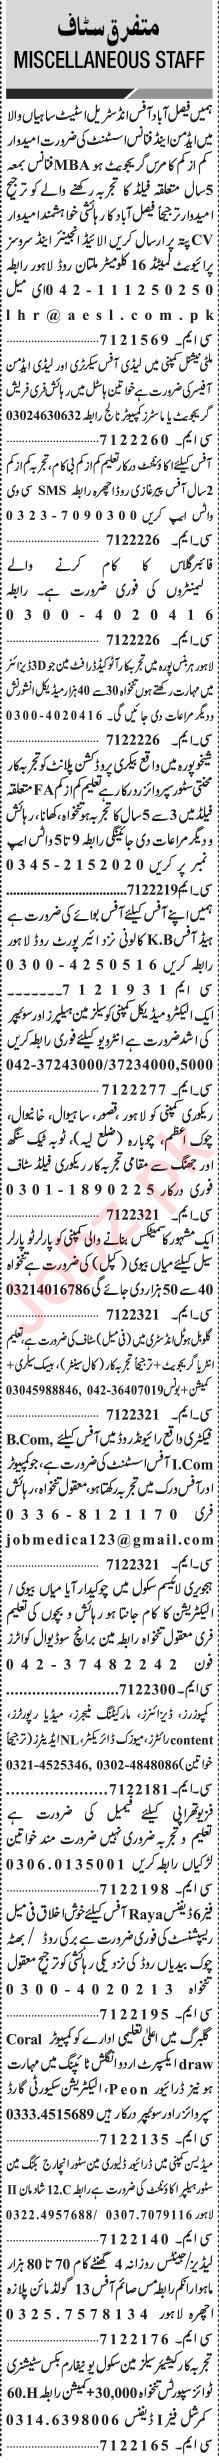 متفرق سٹاف
MISCELLANEOUS STAFF
ہمیں فیصل آباد آفس انڈسٹریل اسٹیٹ ساہیاں والا
میں ایڈمن اینڈ فنانس اسسٹنٹ کی ضرورت امیدوار
کم از کم کامرس گریجویٹ ہو MBA فنانس بمعہ
5 سال متعلقہ فیلڈ کا تجربہ رکھنے والے کو ترجیح
امیدوار ترجیحاً فیصل آباد کا رہائشی خواہشمند امیدوار
CV پتہ پر ارسال کریں الائیڈ انجینئر اینڈ سروسز
پرائیویٹ لمیٹڈ 16 کلومیٹر ملتان روڈ لاہور رابطہ
042-111250250 ای میل
lhr@aesl.com.pk
سی ایم۔ 7121569
ملٹی نیشنل کمپنی میں لیڈی آفس سیکرٹری اور لیڈی ایڈمن
آفیسر کی ضرورت ہے خواتین ہاسٹل میں رہائش فری فریش
گریجویٹ یا ماسٹرز کمپیوٹر نالج رابطہ 03024630632
سی ایم۔ 7122260
آفس کیلئے اکاؤنٹنٹ درکار تعلیم کم از کم بی کام، تجربہ کم از کم
2 سال آفس پیر غازی روڈ اچھرہ رابطہ SMS سی وی
واٹس ایپ کریں 0323-7090300
سی ایم۔ 7122226
فائبر گلاس کا کام کرنے والے
لیمینٹروں کی فوری ضرورت ہے۔ رابطہ
0300-4020416
سی ایم۔ 7122226
لاہور ہربنس پورہ میں تجربہ کار آٹو کیڈ ڈرافٹ مین جو 3D ڈیزائنز
میں مہارت رکھتے ہوں تنخواہ 30 سے 40 ہزار میڈیکل انشورنش
و دیگر مراعات دی جائیں گی۔ 0300-4020416
سی ایم۔ 7122226
شیخوپورہ میں واقع بیکری پروڈکشن پلانٹ کو تجربہ کار
محنتی سٹور سپروائزر درکار ہے تعلیم کم از کم FA متعلقہ
فیلڈ میں 3 سے 5 سال کا تجربہ ہو تنخواہ، کھانا، رہائش
و دیگر مراعات دی جائینگی رابطہ 9 تا 5 واٹس ایپ
نمبر پر کریں 0345-2152020
سی ایم۔ 7122219
ہمیں اپنے آفس کیلئے آفس بوائے کی ضرورت ہے
ہیڈ آفس K.B کالونی نزد ائیر پورٹ روڈ لاہور
رابطہ کریں 0300-4250516
سی ایم 7121931
ایک الیکٹرو میڈیکل کمپنی کو سیلز مین ہیلپرز اور سوئیپر
کی اشد ضرورت ہے انٹرویو کیلئے فوری رابطہ کریں
042-37243000/37234000,5000
سی ایم۔ 7122277
ریکوری کمپنی کو لاہور، قصور، ساہیوال، خانیوال،
چوک اعظم، چوبارہ (ضلع لیہ)، ٹوبہ ٹیک سنگھ
اور جھنگ سے مقامی تجربہ کار ریکوری فیلڈ سٹاف
فوری درکار 0301-1890225
سی ایم۔ 7122321
ایک مشہور کاسمیٹکس بنانے والی کمپنی کو پارلر ٹو پارلر
سیل کیلئے میاں بیوی (کپل) کی ضرورت ہے تنخواہ
40 سے 50 ہزار دی جائے گی 03214016786
سی ایم۔ 7122321
گلوبل ہوٹل انڈسٹری میں (فی میل) سٹاف کی ضرورت ہے، تعلیم
انٹر یا گریجویٹ + ترجیحاً تجربہ کار (کال سینٹر)، بیسک سیلری +
کمیشن + بونس 042-36407019, 03045988846
سی ایم۔ 7122321
فیکٹری واقع رائیونڈ روڈ میں آفس کیلئے B.Com,
I.Com آفس اسسٹنٹ کی ضرورت ہے، جو کمپیوٹر
اور آفس ورک میں تجربہ رکھتا ہو، معقول تنخواہ، رہائش
فری 0336-8121170
jobmedica123@gmail.com
سی ایم۔ 7122321
ہجویری لائیسم سکول میں چوکیدار آیا میاں بیوی /
الیکٹریشن کا کام جانتا ہو رہائش و بچوں کی تعلیم
فری معقول تنخواہ رابطہ مین برانچ سوڈیوال کوارٹرز
فون 042-37482242
سی ایم۔ 7122300
کمپوزرز، ڈیزائنرز، مارکیٹنگ منیجرز، میڈیا رپورٹرز،
content رائٹرز، میوزک ڈائریکٹر، NL ایڈیٹرز (ترجیحاً
خواتین) 0302-4848086, 0321-4525346
سی ایم۔ 7122181
فزیوتھراپی کیلئے فیمیل کی ضرورت ہے
تعلیم و تجربہ ضروری نہیں ضرورت مند خواتین
لڑکیاں رابطہ کریں 0306.0135001
سی ایم۔ 7122198
فیز 6 ڈیفنس Raya آفس کیلئے خوش اخلاق فی میل
ریسپشنسٹ کی فوری ضرورت ہے برکی روڈ / بھٹہ
چوک بیدیاں روڈ کی نزدیکی رہائشی کو ترجیح معقول
تنخواہ 0300-4020213
سی ایم۔ 7122195
گلبرگ میں اعلیٰ تعلیمی ادارے کو کمپیوٹر Coral
draw ایکسپرٹ اردو انگلش ٹائپنگ میں مہارت
ہو نیز ڈرائیور Peon، الیکٹریشن سکیورٹی گارڈ
سپروائزر اور سوئیپر درکار ہیں 0333.4515689
سی ایم۔ 7122135
میڈیسن کمپنی میں ڈرائیور ڈلیوری مین سٹور انچارج پیکنگ مین
سٹور ہیلپر اکاؤنٹنٹ کی ضرورت ہے رابطہ 12.C شادمان II
لاہور 0307.7079116 /0322.4957688
سی ایم۔ 7122140
لیڈیز/جینٹس روزانہ 4 گھنٹے کام 70 تا 80 ہزار
ماہوار انکم رابطہ مس صائم آفس 13 گولڈ مائن پلازہ
اچھرہ لاہور 0325.7578134
سی ایم۔ 7122176
تجربہ کار کیشیئر سیلز مین سکول یونیفارم بکس سٹیشنری
ٹوائز سپورٹس تنخواہ 30,000+ کمیشن رابطہ 60.H
کمرشل فیز I ڈیفنس 0314.6398006
سی ایم۔ 7122165